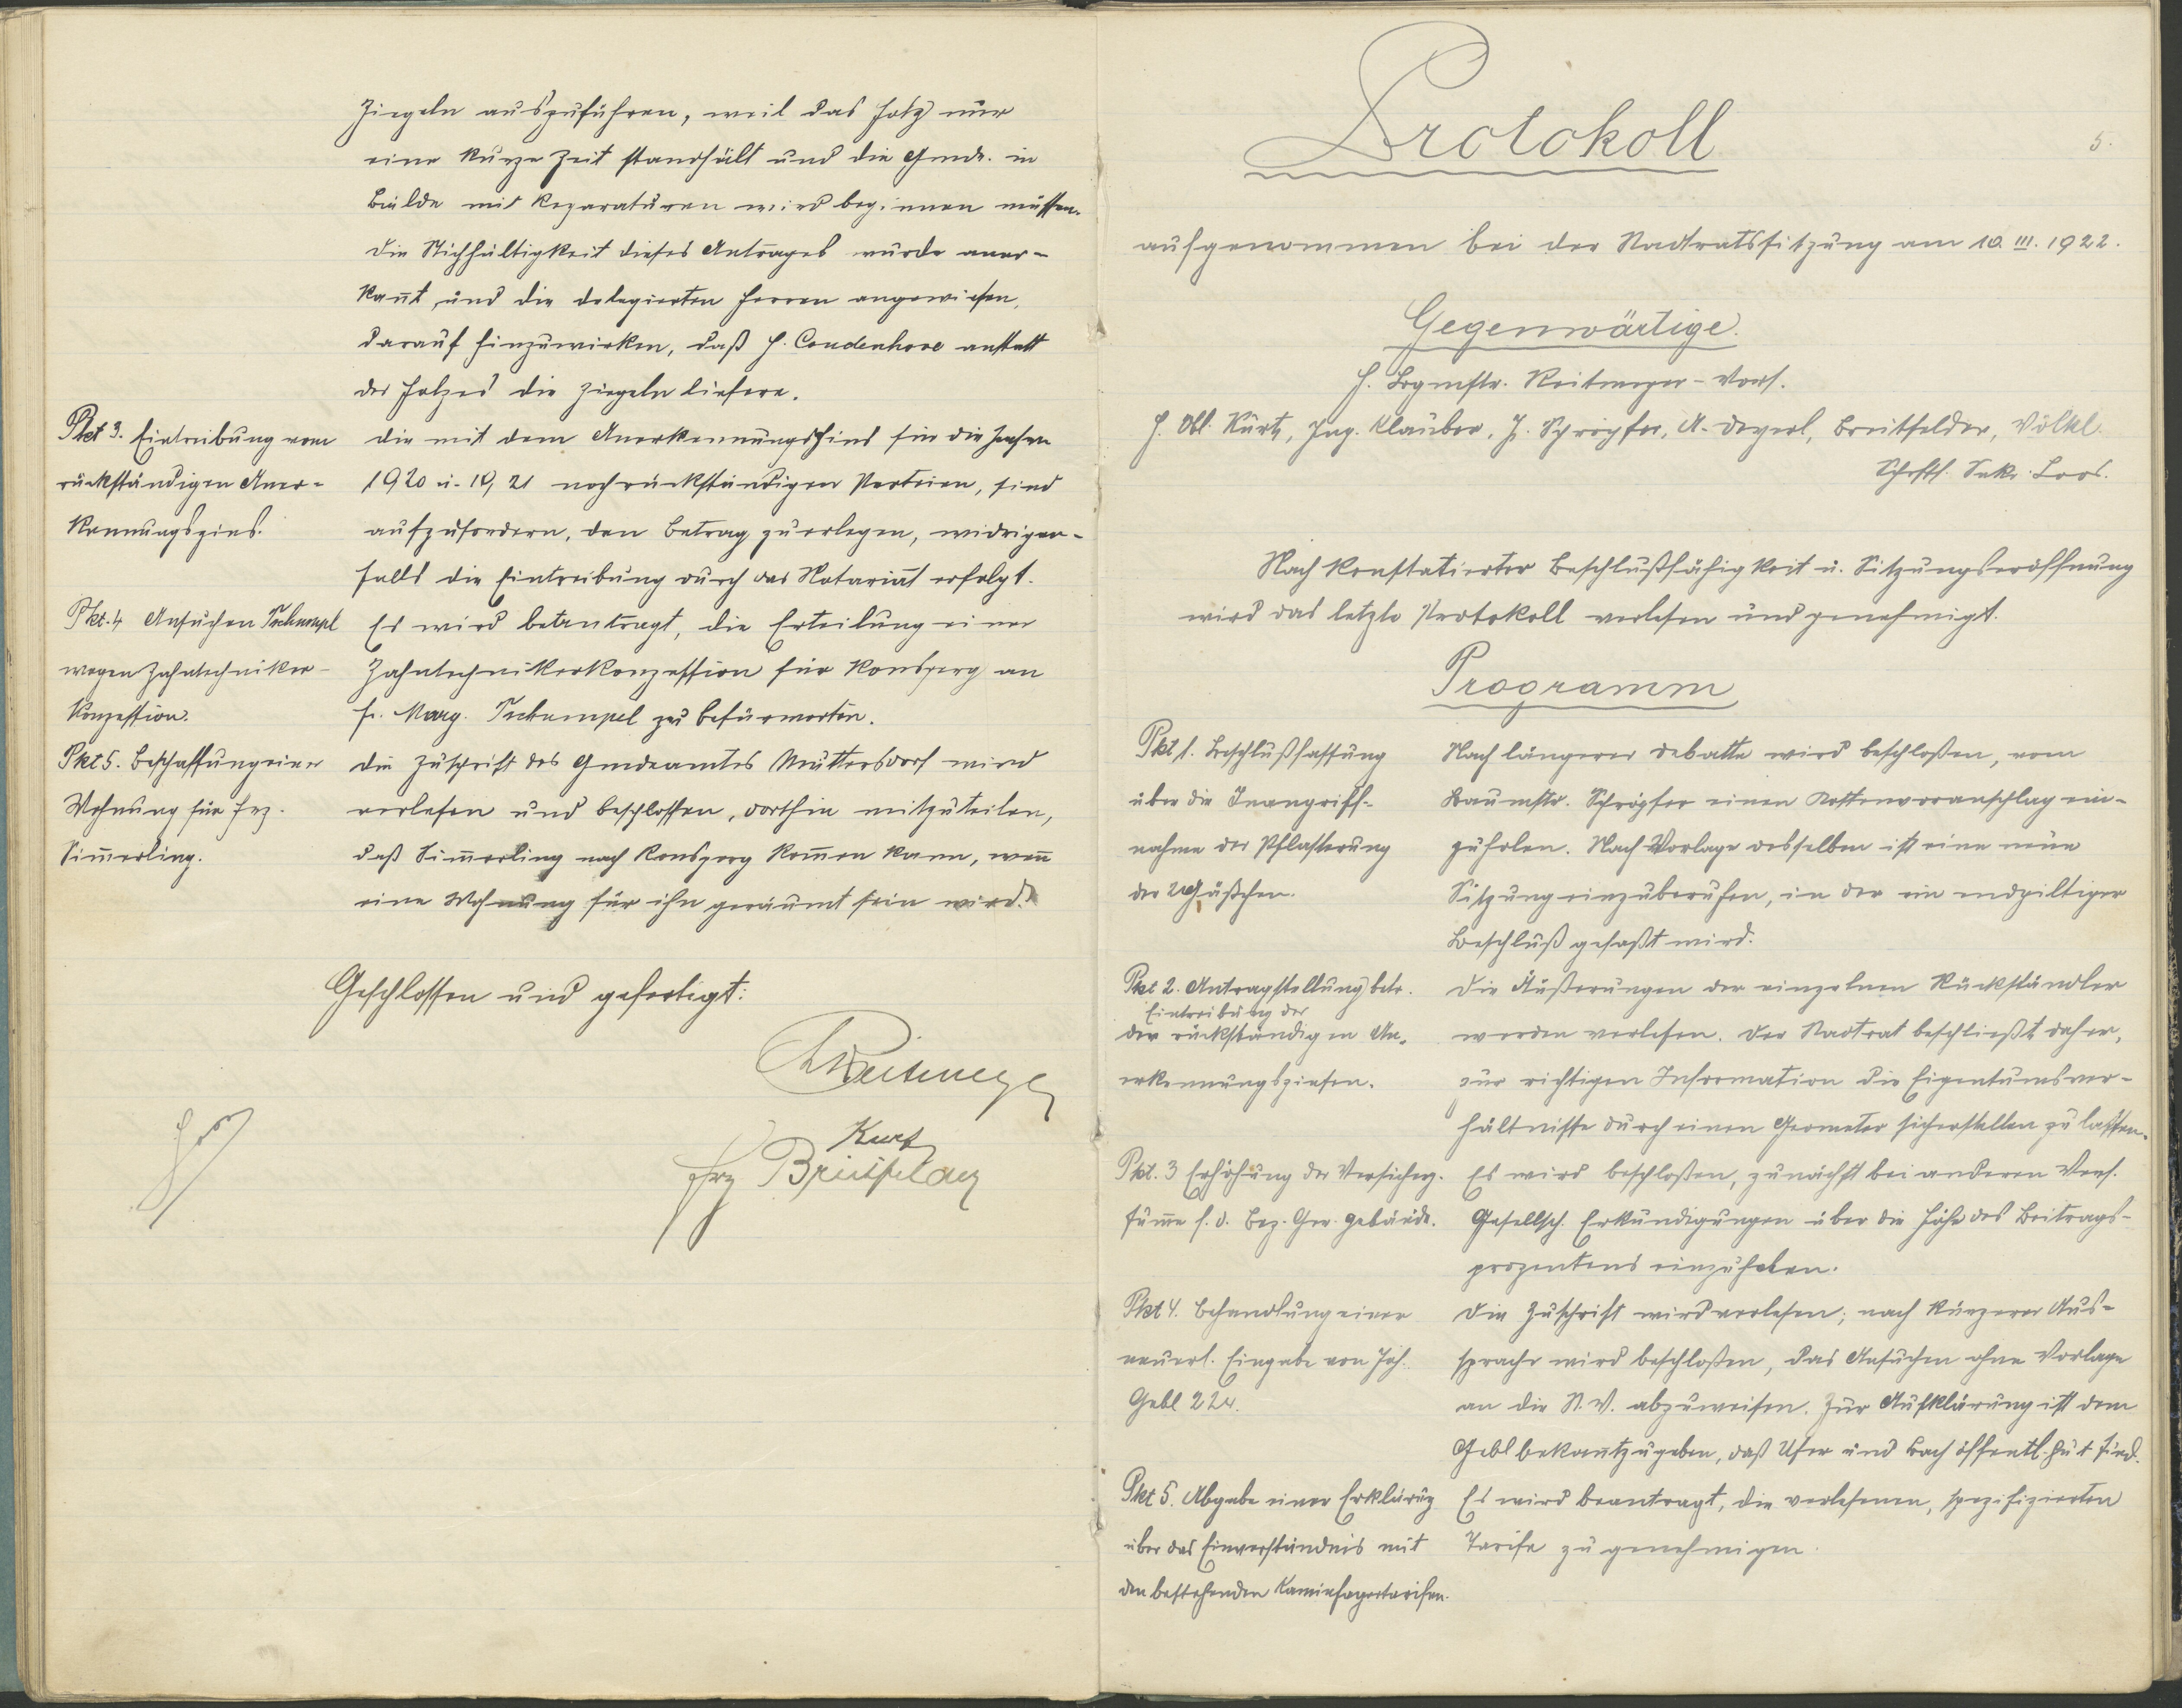 Ziegeln auszuführen, weil das Holz nur
eine kurze Zeit standhält und die Gmde. in
Bälde mit Reparaturen wird beginnen müssen.
Die Stichhältigkeit dieses Antrages wurde aner-
kan̄t und die delegierten Herren angewiesen,
darauf hinzuwirken, daß H. Coudenhove anstatt
des Holzes die Ziegeln liefere.
Pkt 3. Eintreibung vom
rückständigen Aner-
kennungszins.
Die mit dem Anerkennungszins für die Jahre
1920 u. 19,21 noch rückständigen Parteien, sind
aufzufordern, den Betrag zu erlegen, widrigen-
falls die Eintreibung durch das Notariat erfolgt.
Pkt. 4 Ansuchen Tschampel
wegen Zahntechniker-
Konzession.
Es wird beantragt, die Erteilung einer
Zahntechnikerkonzession für Ronsperg an
Fr. Marg. Tschampel zu befürworten.
Pkt 5. Beschaffung einer
Wohnung für Frz.
Sim̄erling.
Die Zuschrift des Gmdeamtes Muttersdorf wird
verlesen und beschlossen, dorthin mitzuteilen,
daß Sim̄erling nach Ronsperg kom̄en kann, wen̄
eine Wohnung für ihn geräumt sein wird.
Geschlossen und gefertigt:
Reitmeyer
Kurtz
Frz Breitfelder
Protokoll
5.
aufgenommen bei der Stadtratssitzung am 10. III. 1922.
Gegenwärtige.
H. Bgmstr. Reitmeyer - Vors.
H. Obl. Kurtz, Ing. Klauber, J. Schröpfer, A. Deyerl, Breitfelder, Völkl.
Schrftf. Sekr. Loos.
Nach konstatierter Beschlußfähigkeit u. Sitzungseröffnung
wird das letzte Protokoll verlesen und genehmigt.
Programm
Pkt 1. Beschlußfassung
über die Inangriff-
nahme der Pflasterung
der 2 Gäßchen.
Nach längerer Debatte wird beschloßen, vom
Baumstr. Schröpfer einen Kostenvoranschlag ein-
zuholen. Nach Vorlage desselben ist eine neue
Sitzung einzuberufen, in der ein endgiltiger
Beschluß gefaßt wird.
Pkt 2. Antragstellung betr.
Eintreibung der
der rückständigen An-
erkennungszinsen.
Die Äußerungen der einzelnen Rückständler
werden verlesen. Der Stadtrat beschließt daher,
zur richtigen Information die Eigentumsver-
hältnisse durch einen Geometer sicherstellen zu lassen.
Pkt. 3 Erhöhung der Versicherg.
sum̄e f. d. Bez. Ger. gebäude.
Es wird beschloßen, zunächst bei anderen Vers.
Gesellsch. Erkundigungen über die Höhe des Beitrags-
prozentens einzuholen.
Pkt 4. Behandlung einer
neuerl. Eingabe von Joh.
Gebl 224.
Die Zuschrift wird verlesen; nach kürzerer Aus-
sprache wird beschloßen, das Ansuchen ohne Vorlage
an die St. V. abzuweisen. Zur Aufklärung ist dem
Gebl bekan̄tzugeben, daß Ufer und Bach öffentl. Gut sind.
Pkt 5. Abgabe einer Erklärung
über das Einverständnis mit
den bestehenden Kaminfegertarifen.
Es wird beantragt, die verlesenen, spezifizierten
Tarife zu genehmigen.